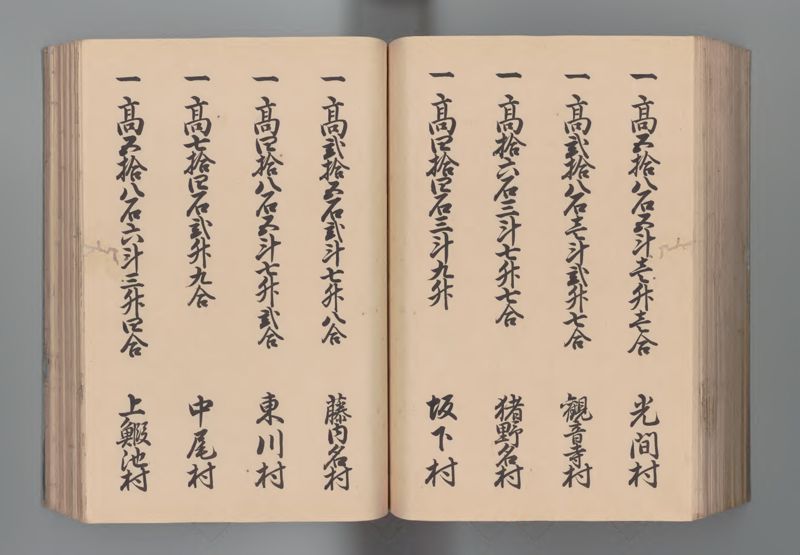 一 高五拾八石五斗壱升壱合 光間村
一 高弐拾八石壱斗弐升七合 観音寺村
一 高拾六石三斗七升七合 猪野名村
一 高四拾四石三斗九升 坂下村
一 高弐拾五石弐斗七升八合 藤内名村
一 高四拾八石五斗七升弐合 東川村
一 高七拾四石弐升九合 中尾村
一 高五拾八石六斗三升四合 上鰕池村